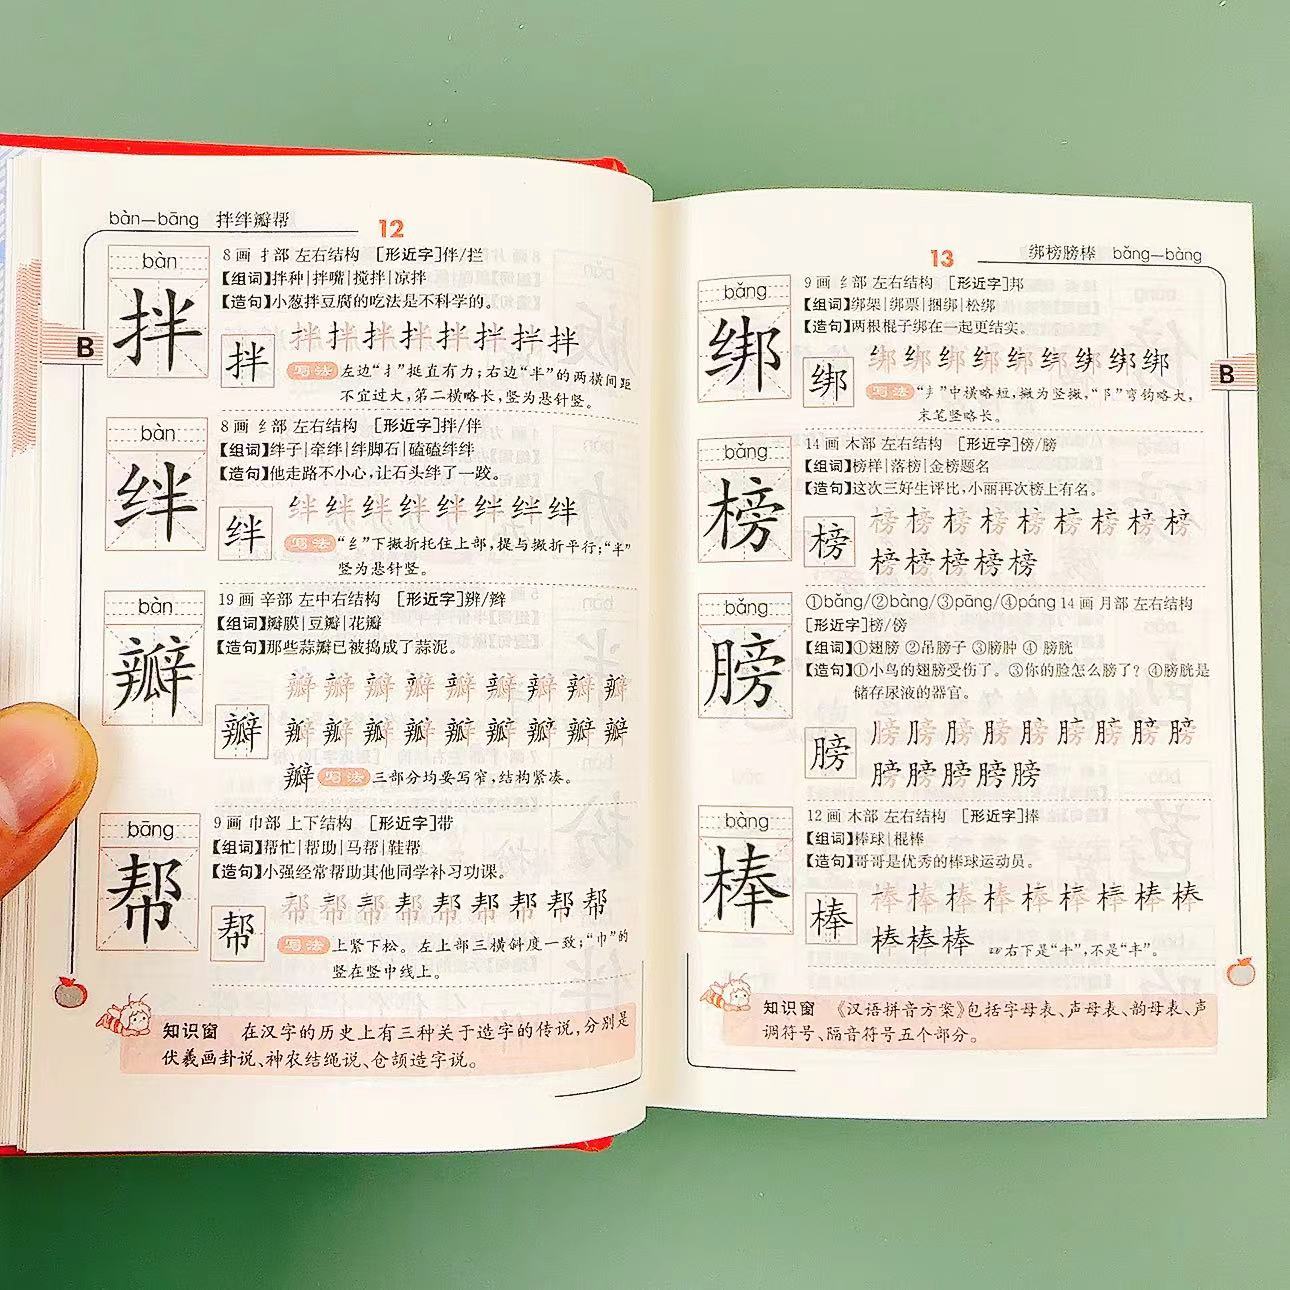 bàn—bāng 拌绊瓣帮
12
B
bàn
拌
8画 扌部 左右结构 [形近字]伴/拦
【组词】拌种|拌嘴|搅拌|凉拌
【造句】小葱拌豆腐的吃法是不科学的。
拌
拌拌拌拌拌拌拌拌
写法 左边“扌”挺直有力;右边“半”的两横间距
不宜过大,第二横略长,竖为悬针竖。
bàn
绊
8画 纟部 左右结构 [形近字]拌/伴
【组词】绊子|牵绊|绊脚石|磕磕绊绊
【造句】他走路不小心,让石头绊了一跤。
绊
绊绊绊绊绊绊绊绊
写法 “纟”下撇折托住上部,提与撇折平行;“半”
竖为悬针竖。
bàn
瓣
19画 辛部 左中右结构 [形近字]辨/辫
【组词】瓣膜|豆瓣|花瓣
【造句】那些蒜瓣已被捣成了蒜泥。
瓣
瓣瓣瓣瓣瓣瓣瓣瓣瓣
瓣瓣瓣瓣瓣瓣瓣瓣瓣
瓣 写法 三部分均要写窄,结构紧凑。
bāng
帮
9画 巾部 上下结构 [形近字]带
【组词】帮忙|帮助|马帮|鞋帮
【造句】小强经常帮助其他同学补习功课。
帮
帮帮帮帮帮帮帮帮帮
写法 上紧下松。左上部三横斜度一致;“巾”的
竖在竖中线上。
知识窗 在汉字的历史上有三种关于造字的传说,分别是
伏羲画卦说、神农结绳说、仓颉造字说。
13
绑榜膀棒 bǎng—bàng
B
bǎng
绑
9画 纟部 左右结构 [形近字]邦
【组词】绑架|绑票|捆绑|松绑
【造句】两根棍子绑在一起更结实。
绑
绑绑绑绑绑绑绑绑绑
写法 中横略短,撇为竖撇,“阝”弯钩略大,
末笔竖略长。
bǎng
榜
14画 木部 左右结构 [形近字]傍/膀
【组词】榜样|落榜|金榜题名
【造句】这次三好生评比,小丽再次榜上有名。
榜
榜榜榜榜榜榜榜榜榜
榜榜榜榜榜
bǎng
膀
①bǎng/②bàng/③pāng/④páng 14画 月部 左右结构
[形近字]榜/傍
【组词】①翅膀 ②吊膀子 ③膀肿 ④膀胱
【造句】①小鸟的翅膀受伤了。③你的脸怎么膀了?④膀胱是
储存尿液的器官。
膀
膀膀膀膀膀膀膀膀膀
膀膀膀膀膀
bàng
棒
12画 木部 左右结构 [形近字]捧
【组词】棒球|棍棒
【造句】哥哥是优秀的棒球运动员。
棒
棒棒棒棒棒棒棒棒棒
棒棒棒 右下是“キ”,不是“丰”。
知识窗 《汉语拼音方案》包括字母表、声母表、韵母表、声
调符号、隔音符号五个部分。